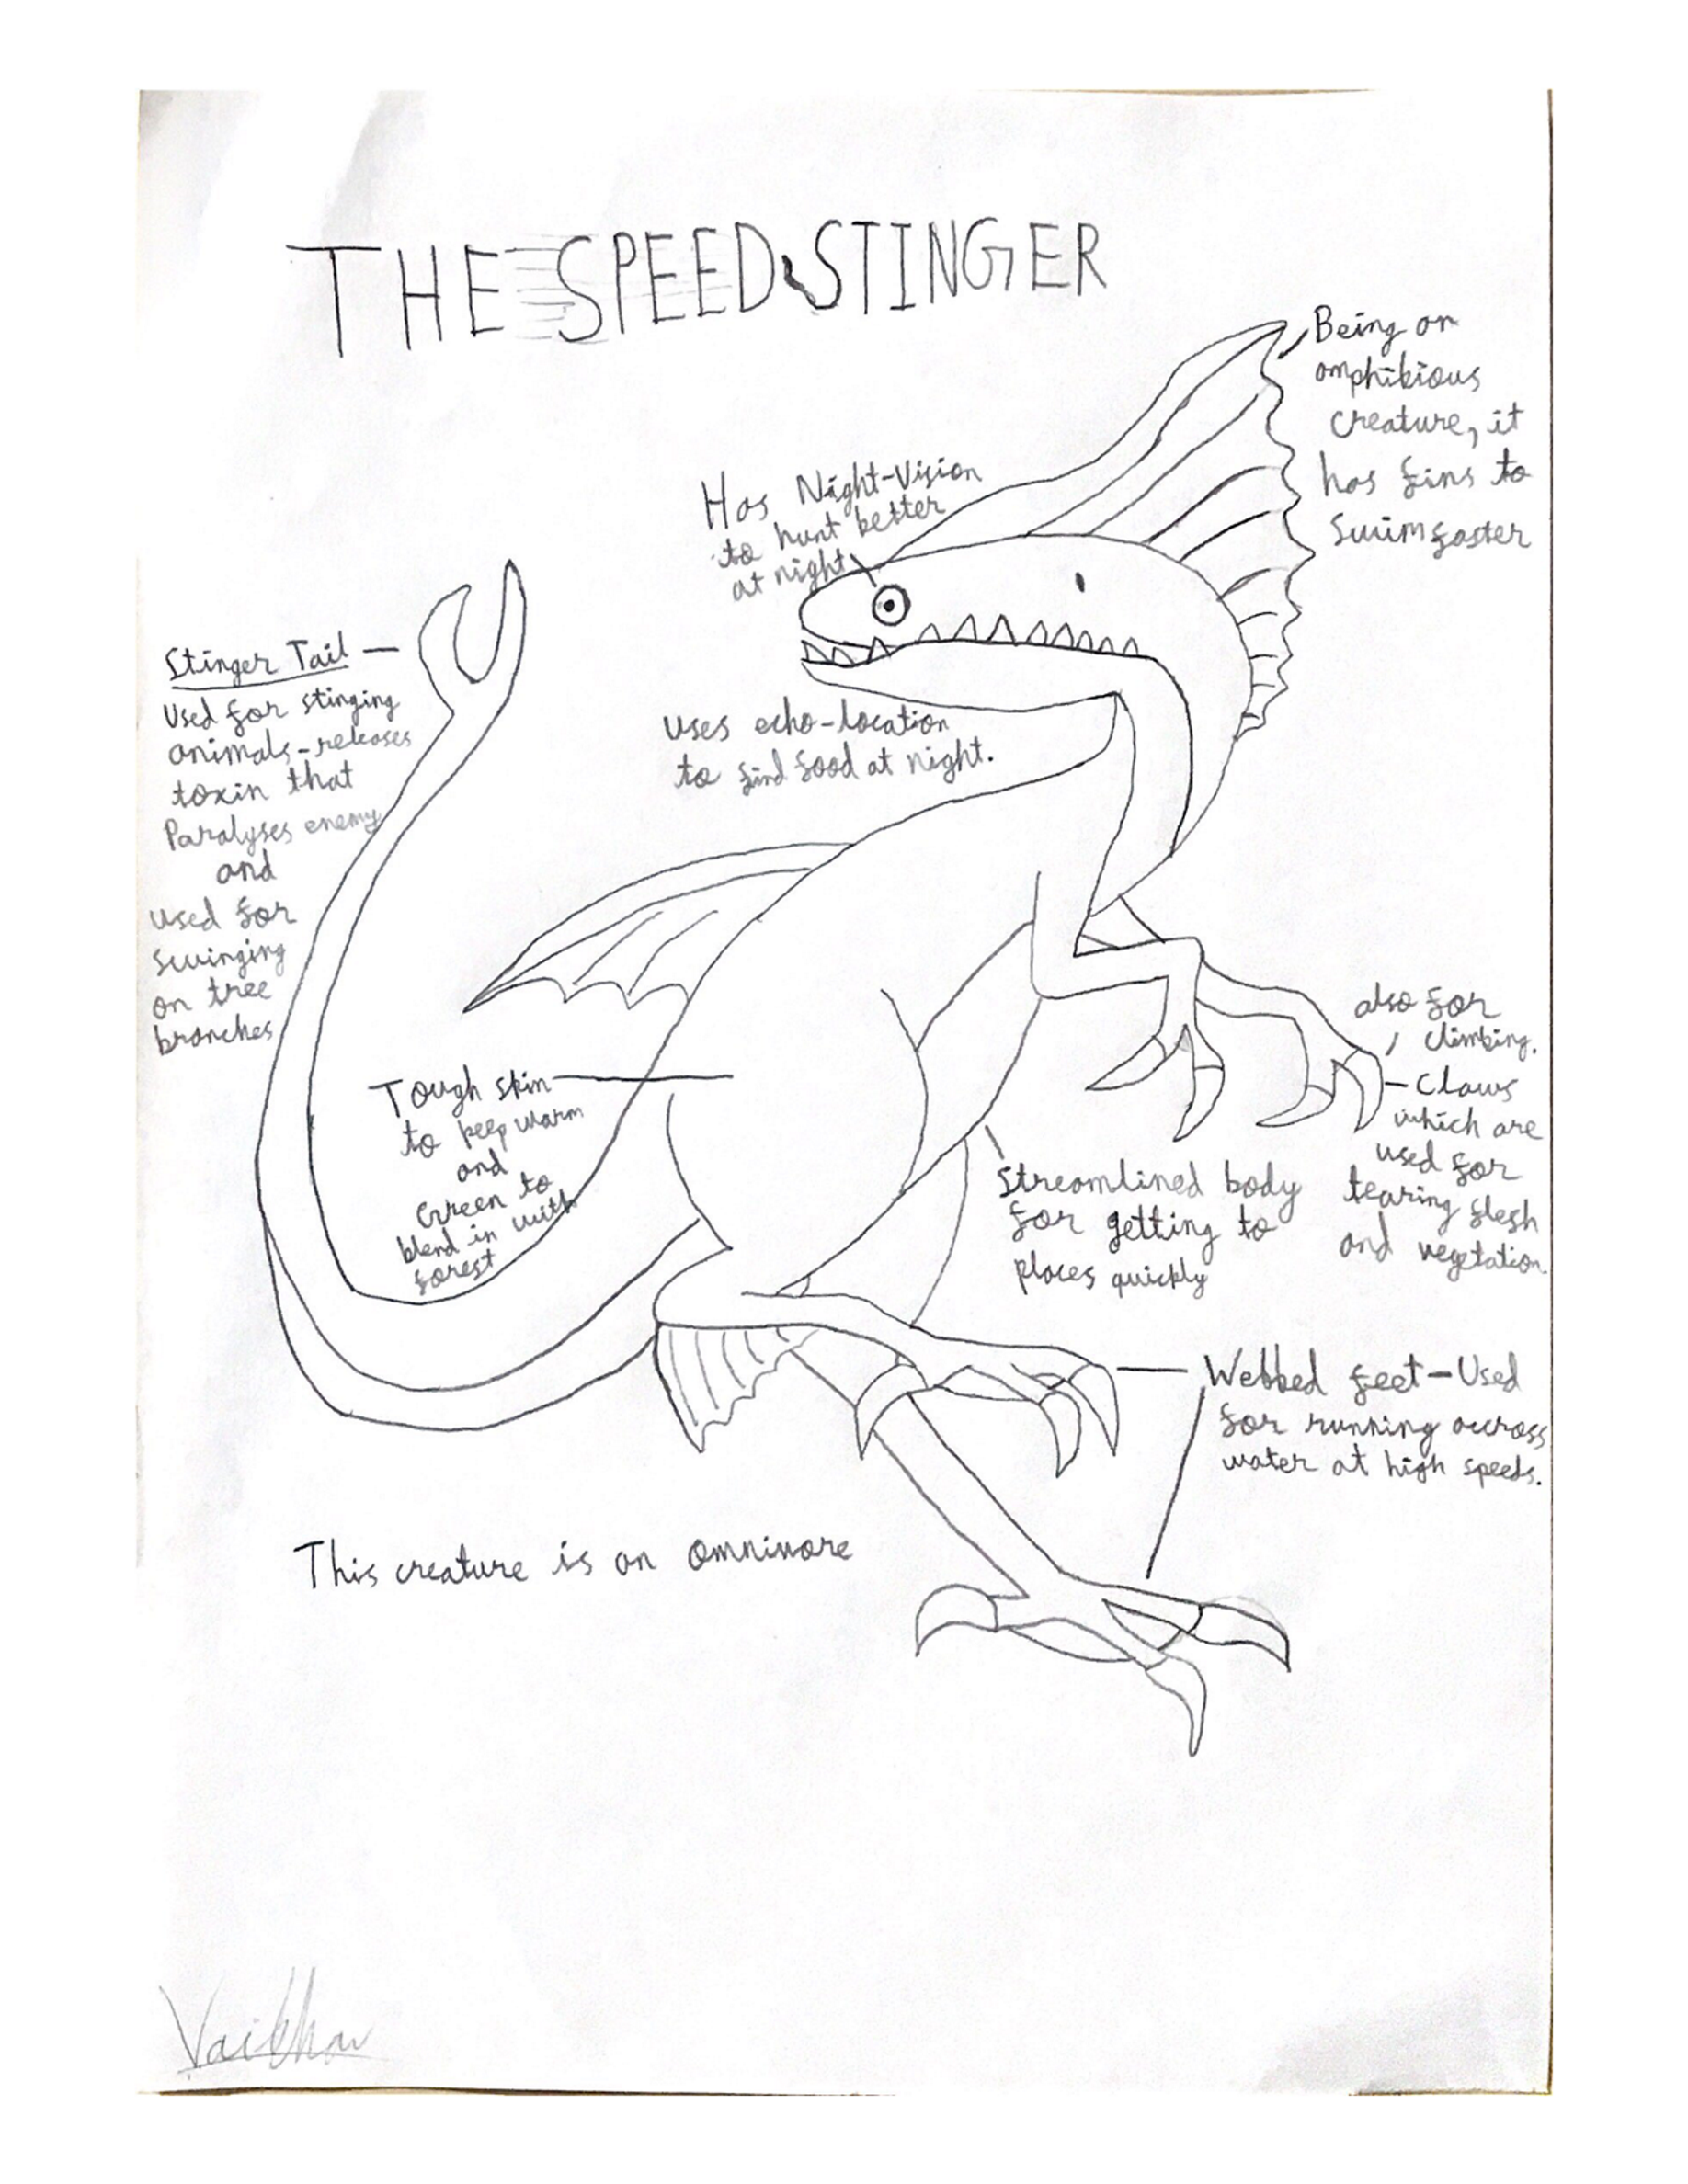 THE SPEED STINGER
Being an
amphibious
creature, it
has fins to
swim faster
Has Night-Vision
to hunt better
at night
Stinger Tail
Used for stinging
animals - releases
toxin that
Paralyses enemy
and
used for
swinging
on tree
branches
uses echo-location
to find food at night.
also for
climbing.
Claws
which are
used for
tearing flesh
and vegetation.
Tough skin
to keep warm
and
Green to
blend in with
forest
Streamlined body
for getting to
places quickly
Webbed feet - Used
for running accross
water at high speeds.
This creature is an omnivore
Vaibhav